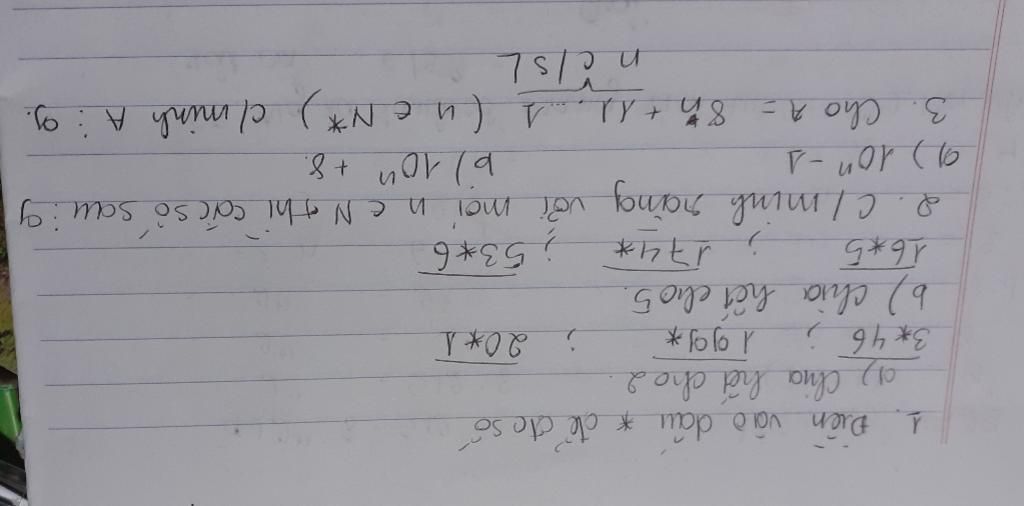 1. Điền vào dấu * để đc số
a) Chia hết cho 2.
3*46 ; 199* ; 20*1
b) chia hết cho 5.
16*5 ; 174* ; 53*6
2. C/minh rằng với mọi n ∈ N thì các số sau ⋮ 9
a) 10ⁿ - 1 b) 10ⁿ + 8.
3. Cho A = 8n + 11...1 (n ∈ N*) c/minh A ⋮ 9.
n c/s 1